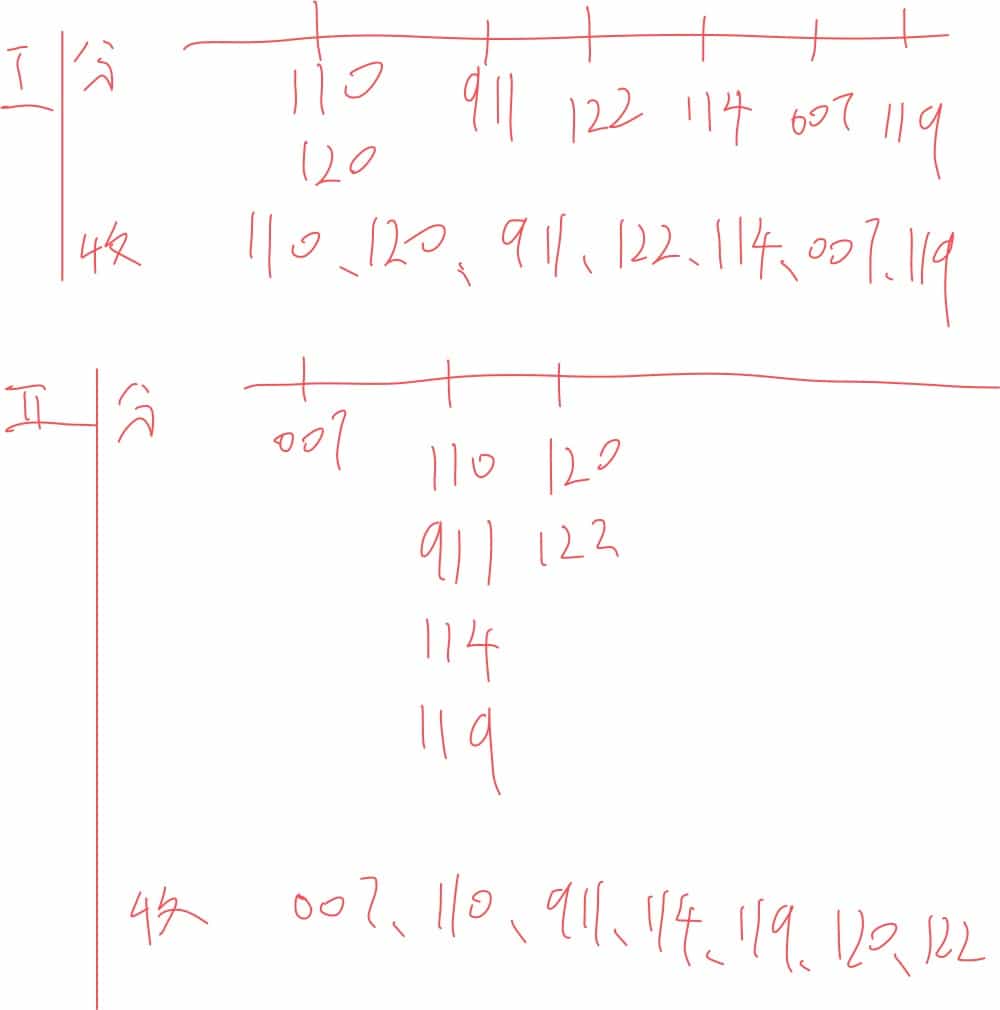 I 分
110 911 122 114 007 119
120
收 110、120、911、122、114、007、119
II 分
007 110 120
911 122
114
119
收 007、110、911、114、119、120、122